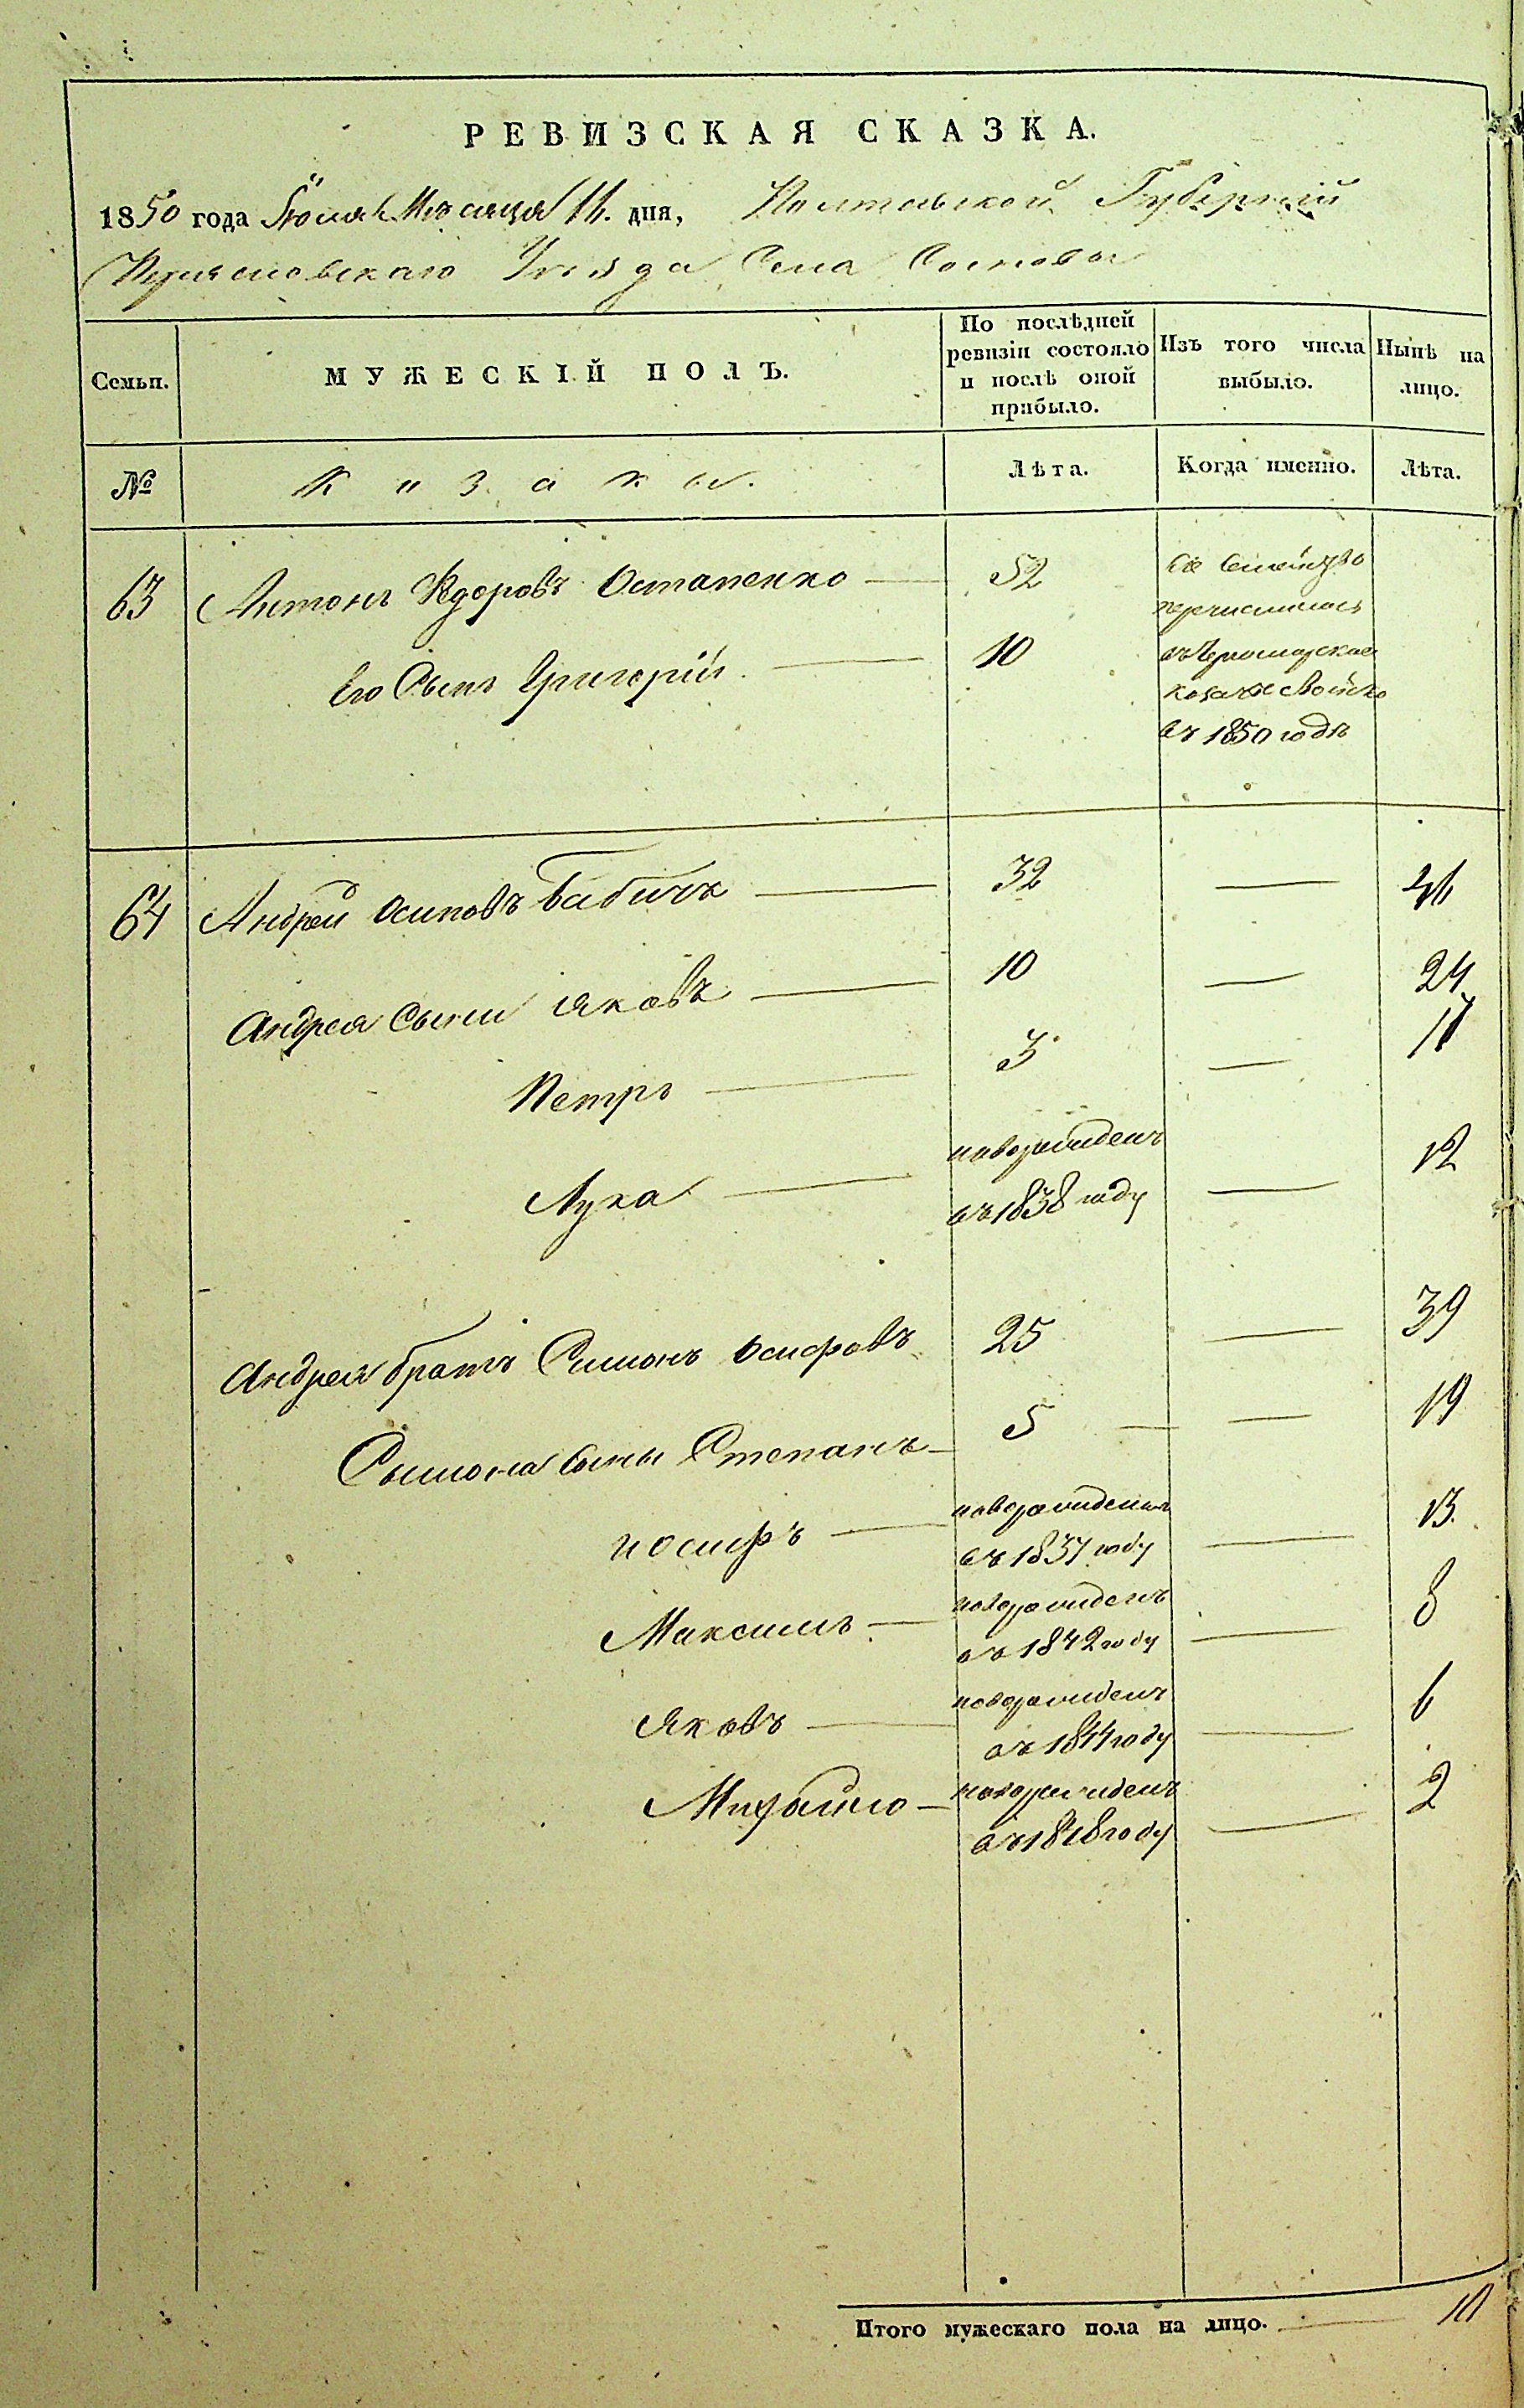 РЕВИЗСКАЯ СКАЗКА.
1850 года Іюля Мѣсяца 11. дня, Полтавской Губерніи
Переяславскаго Уѣзда Села Сосновы
Семьи. МУЖЕСКІЙ ПОЛЪ. По послѣдней ревизіи состояло и послѣ оной прибыло. Изъ того числа выбыло. Нынѣ на лицо.
№ Козаки. Лѣта. Когда именно. Лѣта.
63 Антонъ Федоровъ Остапенко — 52 Сіе Семейство
перечислилось
Его Сынъ Григорій — 10 въ Черноморское
козачье войско
въ 1850 годѣ
64 Андрей Осиповъ Бабичъ — 32 — 46
Андрея Сыны Яковъ — 10 — 24
Петръ — 3 — 17
Лука — новорожденъ
въ 1838 году — 12
Андрея братъ Симонъ Осифовъ 25 — 39
Симона Сыны Степанъ — 5 — — 19
Иосифъ — новорожденъ
въ 1837 году — 13.
Максимъ — новорожденъ
въ 1842 году — 8
Яковъ — новорожденъ
въ 1844 году — 6
Михайло — новорожденъ
въ 1848 году — 2
Итого мужескаго пола на лицо. — 10